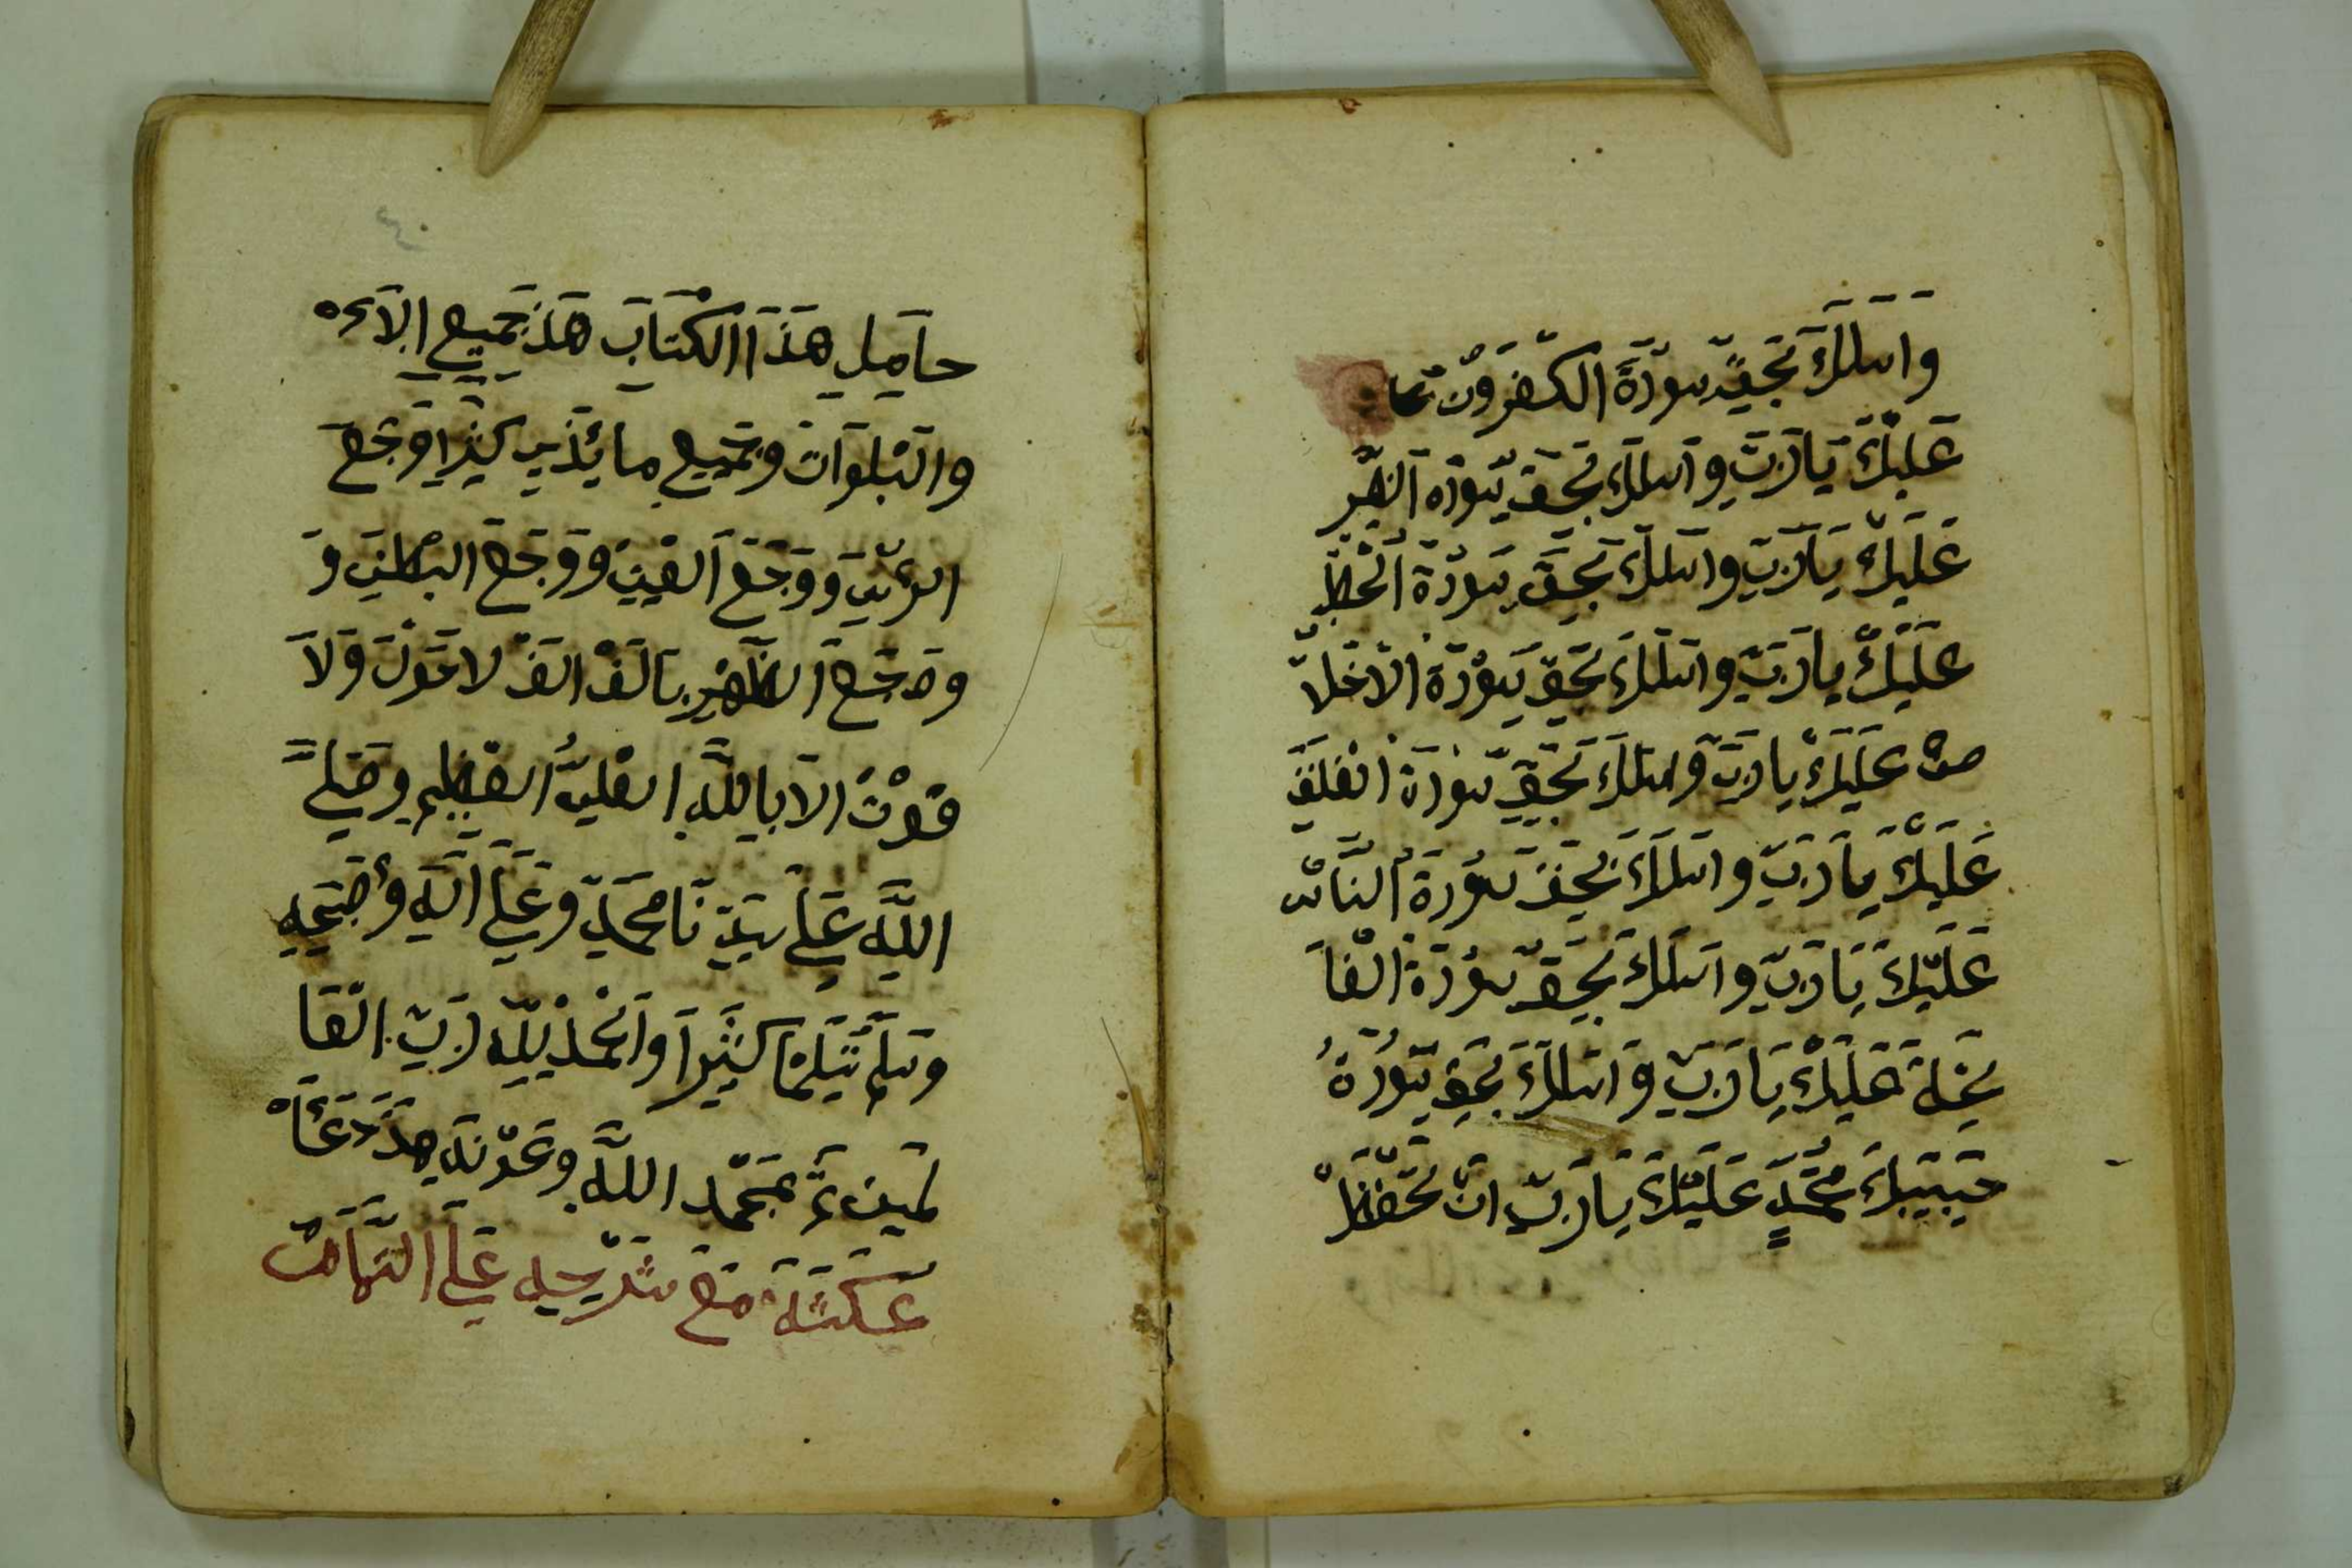 واسلك بحق سورة الكفرون
عليك يارب واسلك بحق سورة النصر
عليك يارب واسلك بحق سورة الحطب
عليك يارب واسلك بحق سورة الاخلا
ص عليك يارب واسلك بحق سورة الفلق
عليك يارب واسلك بحق سورة الناس
عليك يارب واسلك بحق سورة الفا
تحة عليك يارب واسلك بحق سورة
حبيبك محمد عليك يارب ان تحفظ
حامل هذا الكتاب هذ جميع
والبلوات وجميع ما يؤذي كثيرا وجع
الرئس ووجع العين ووجع البطن و
وجع الظهر بالف الف لا حول ولا
قوت الا بالله العلي العظيم وصلى
الله على سيدنا محمد وعلى اله واصحبه
وسلم تسليما كثيرا والحمد لله رب العا
لمين تم بحمد الله وعونه هذ دعاء
عكشة مع شرحه على التمام